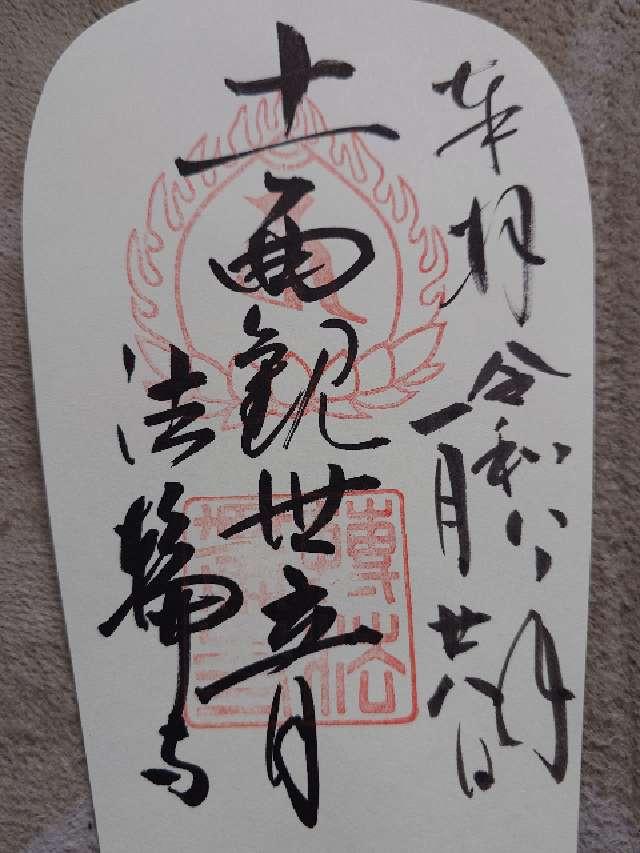 奉拝
令和八年
一月廿八日
十一面観世音
法輪寺